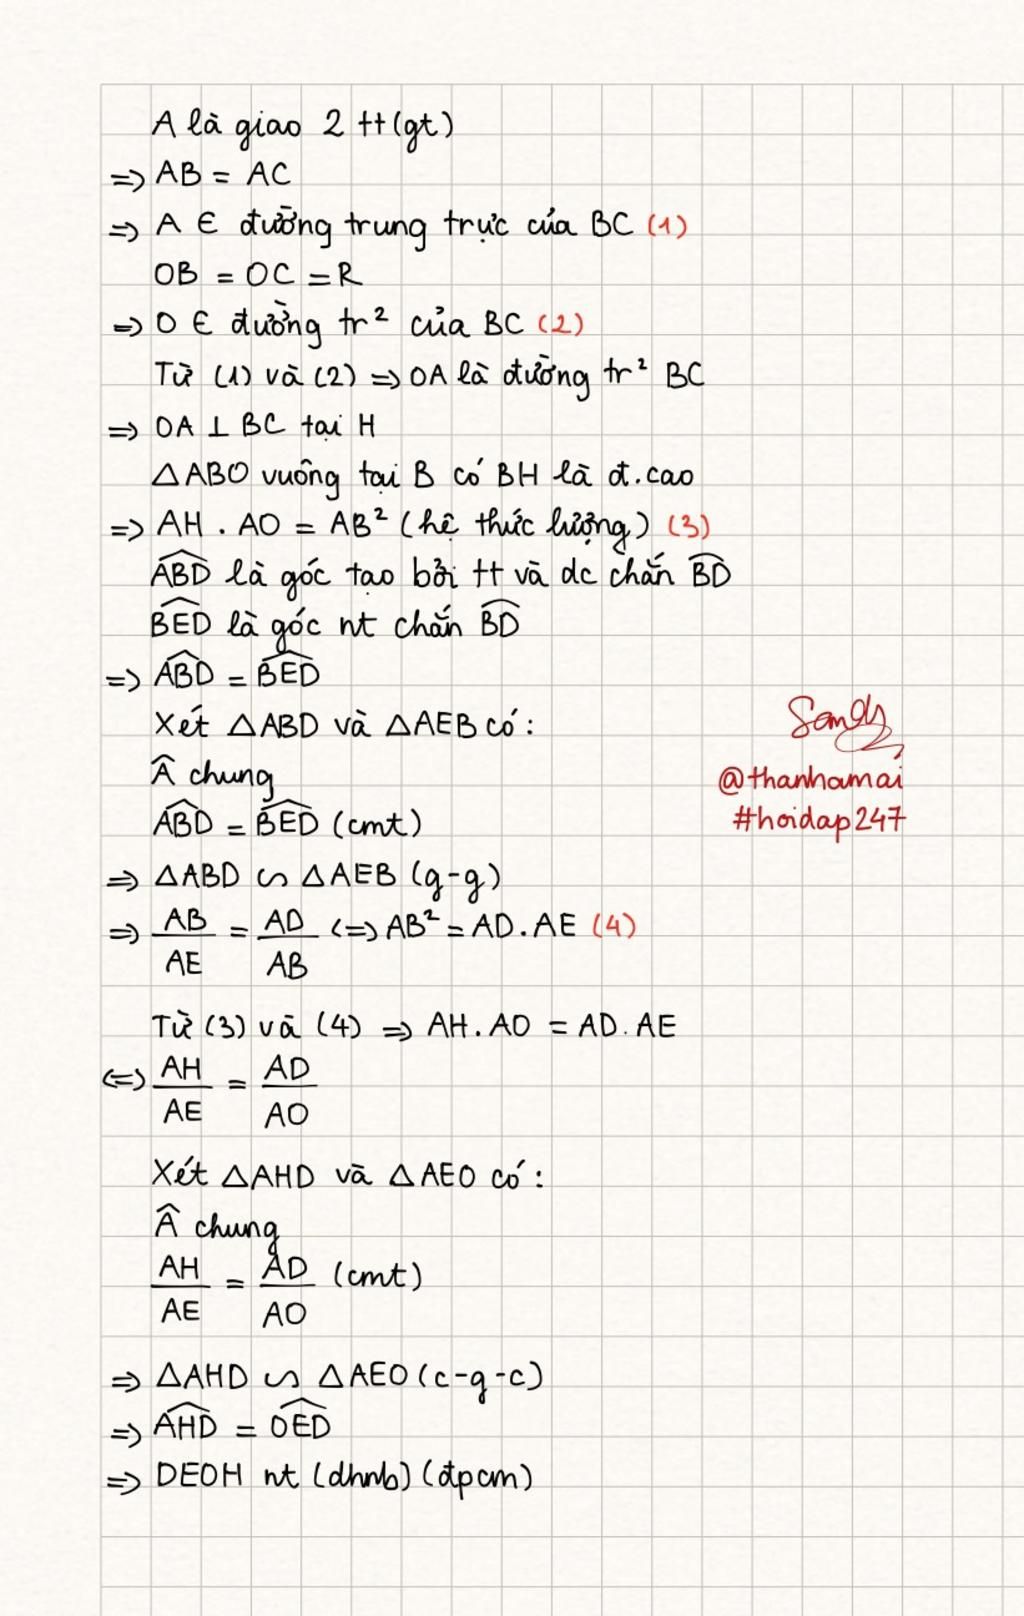 A là giao 2 tt (gt)
=> AB = AC
=> A ∈ đường trung trực của BC (1)
OB = OC = R
=> O ∈ đường tr² của BC (2)
Từ (1) và (2) => OA là đường tr² BC
=> OA ⊥ BC tại H
△ABO vuông tại B có BH là đ.cao
=> AH . AO = AB² (hệ thức lượng) (3)
\widehat{ABD} là góc tạo bởi tt và dc chắn \widehat{BD}
\widehat{BED} là góc nt chắn \widehat{BD}
=> \widehat{ABD} = \widehat{BED}
Xét △ABD và △AEB có :
Â chung
\widehat{ABD} = \widehat{BED} (cmt)
=> △ABD ∽ △AEB (g-g)
=> AB/AE = AD/AB <=> AB² = AD.AE (4)
Từ (3) và (4) => AH.AO = AD.AE
<=> AH/AE = AD/AO
Xét △AHD và △AEO có :
Â chung
AH/AE = AD/AO (cmt)
=> △AHD ∽ △AEO (c-g-c)
=> \widehat{AHD} = \widehat{OED}
=> DEOH nt (dhnb) (đpcm)
@thanhamai
#hoidap247